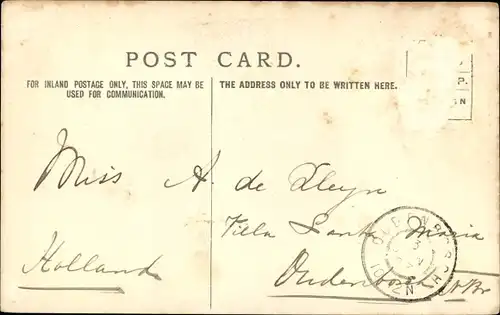 POST CARD.
FOR INLAND POSTAGE ONLY, THIS SPACE MAY BE
USED FOR COMMUNICATION.
THE ADDRESS ONLY TO BE WRITTEN HERE.
Miss A. de Kleyn
Villa Santa Maria
Holland
Oudenbosch
N.Br
OUDENBOSCH